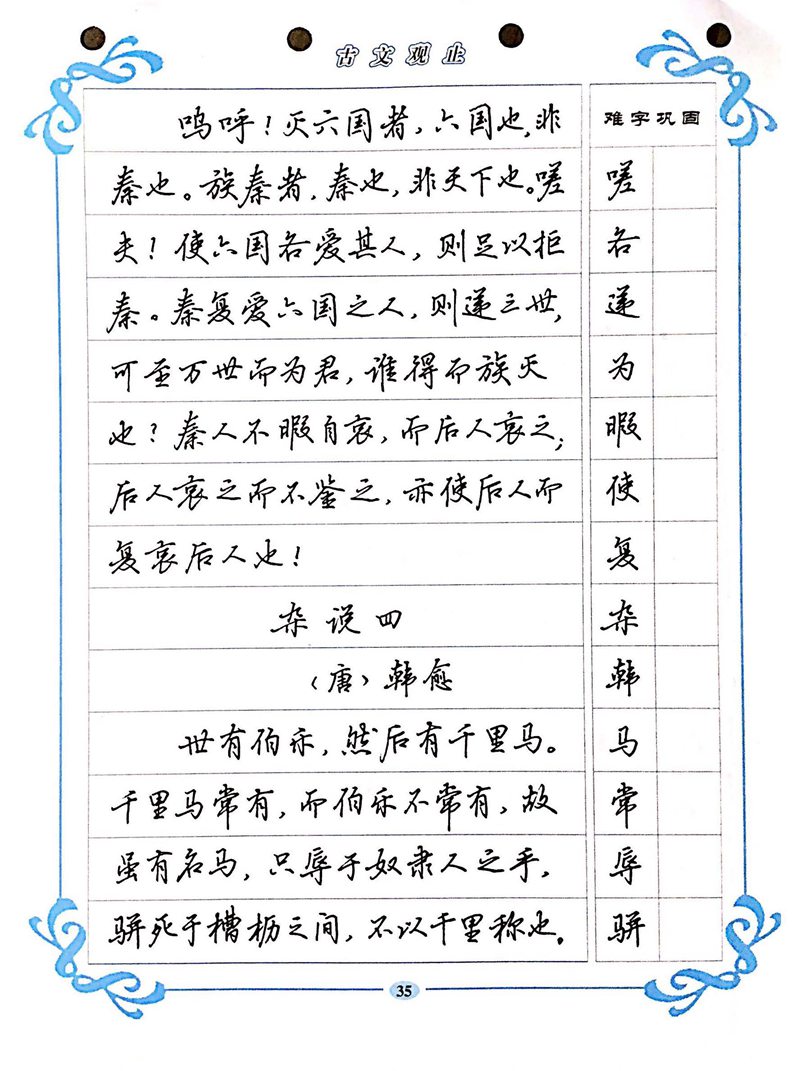 古文观止
呜呼！灭六国者，六国也，非
秦也。族秦者，秦也，非天下也。嗟
夫！使六国各爱其人，则足以拒
秦。秦复爱六国之人，则递三世，
可至万世而为君，谁得而族灭
也？秦人不暇自哀，而后人哀之；
后人哀之而不鉴之，亦使后人而
复哀后人也！
杂说四
（唐）韩愈
世有伯乐，然后有千里马。
千里马常有，而伯乐不常有，故
虽有名马，只辱于奴隶人之手，
骈死于槽枥之间，不以千里称也。
难字巩固
嗟
各
递
为
暇
使
复
杂
韩
马
常
辱
骈
35